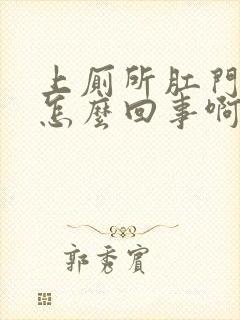 上厠所肛門
怎麽回事啊
郭秀賓